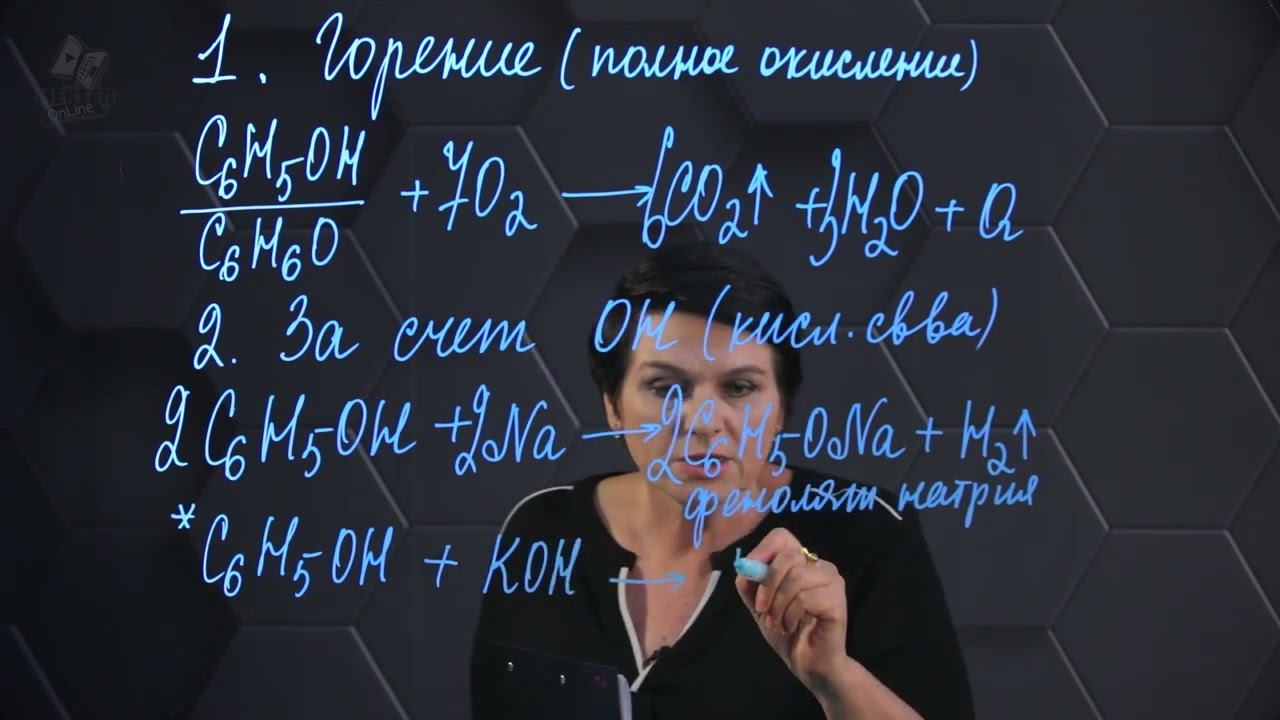 1. Горение (полное окисление)
C₆H₅OH + 7O₂ → 6CO₂↑ + 3H₂O + Q
C₆H₆O
2. За счет OH (кисл. св-ва)
2C₆H₅-OH + 2Na → 2C₆H₅-ONa + H₂↑
фенолят натрия
* C₆H₅-OH + KOH →
OnLine